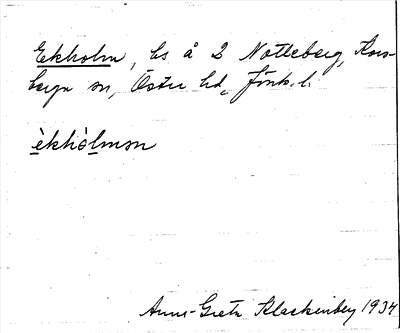 Ekholm, ls å 2 Notteberg, Kors-
berga sn, Östra hd, Jönk. l.
èkhòlmən
Anna-Greta Klackenberg 1934